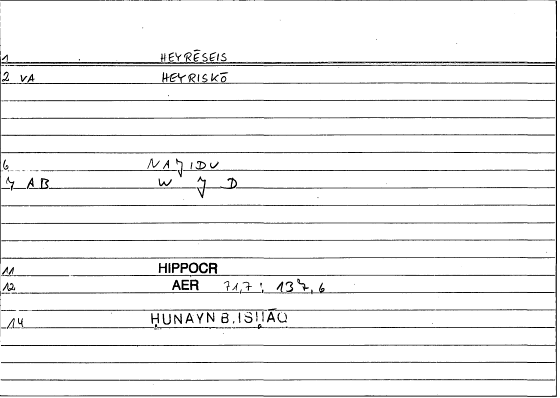 1 HEYRĒSEIS
2 VA HEYRISKŌ
6 NAJIDU
7 AB W J D
11 HIPPOCR
12 AER 71,7 : 137,6
14 ḤUNAYN B. ISḤĀQ